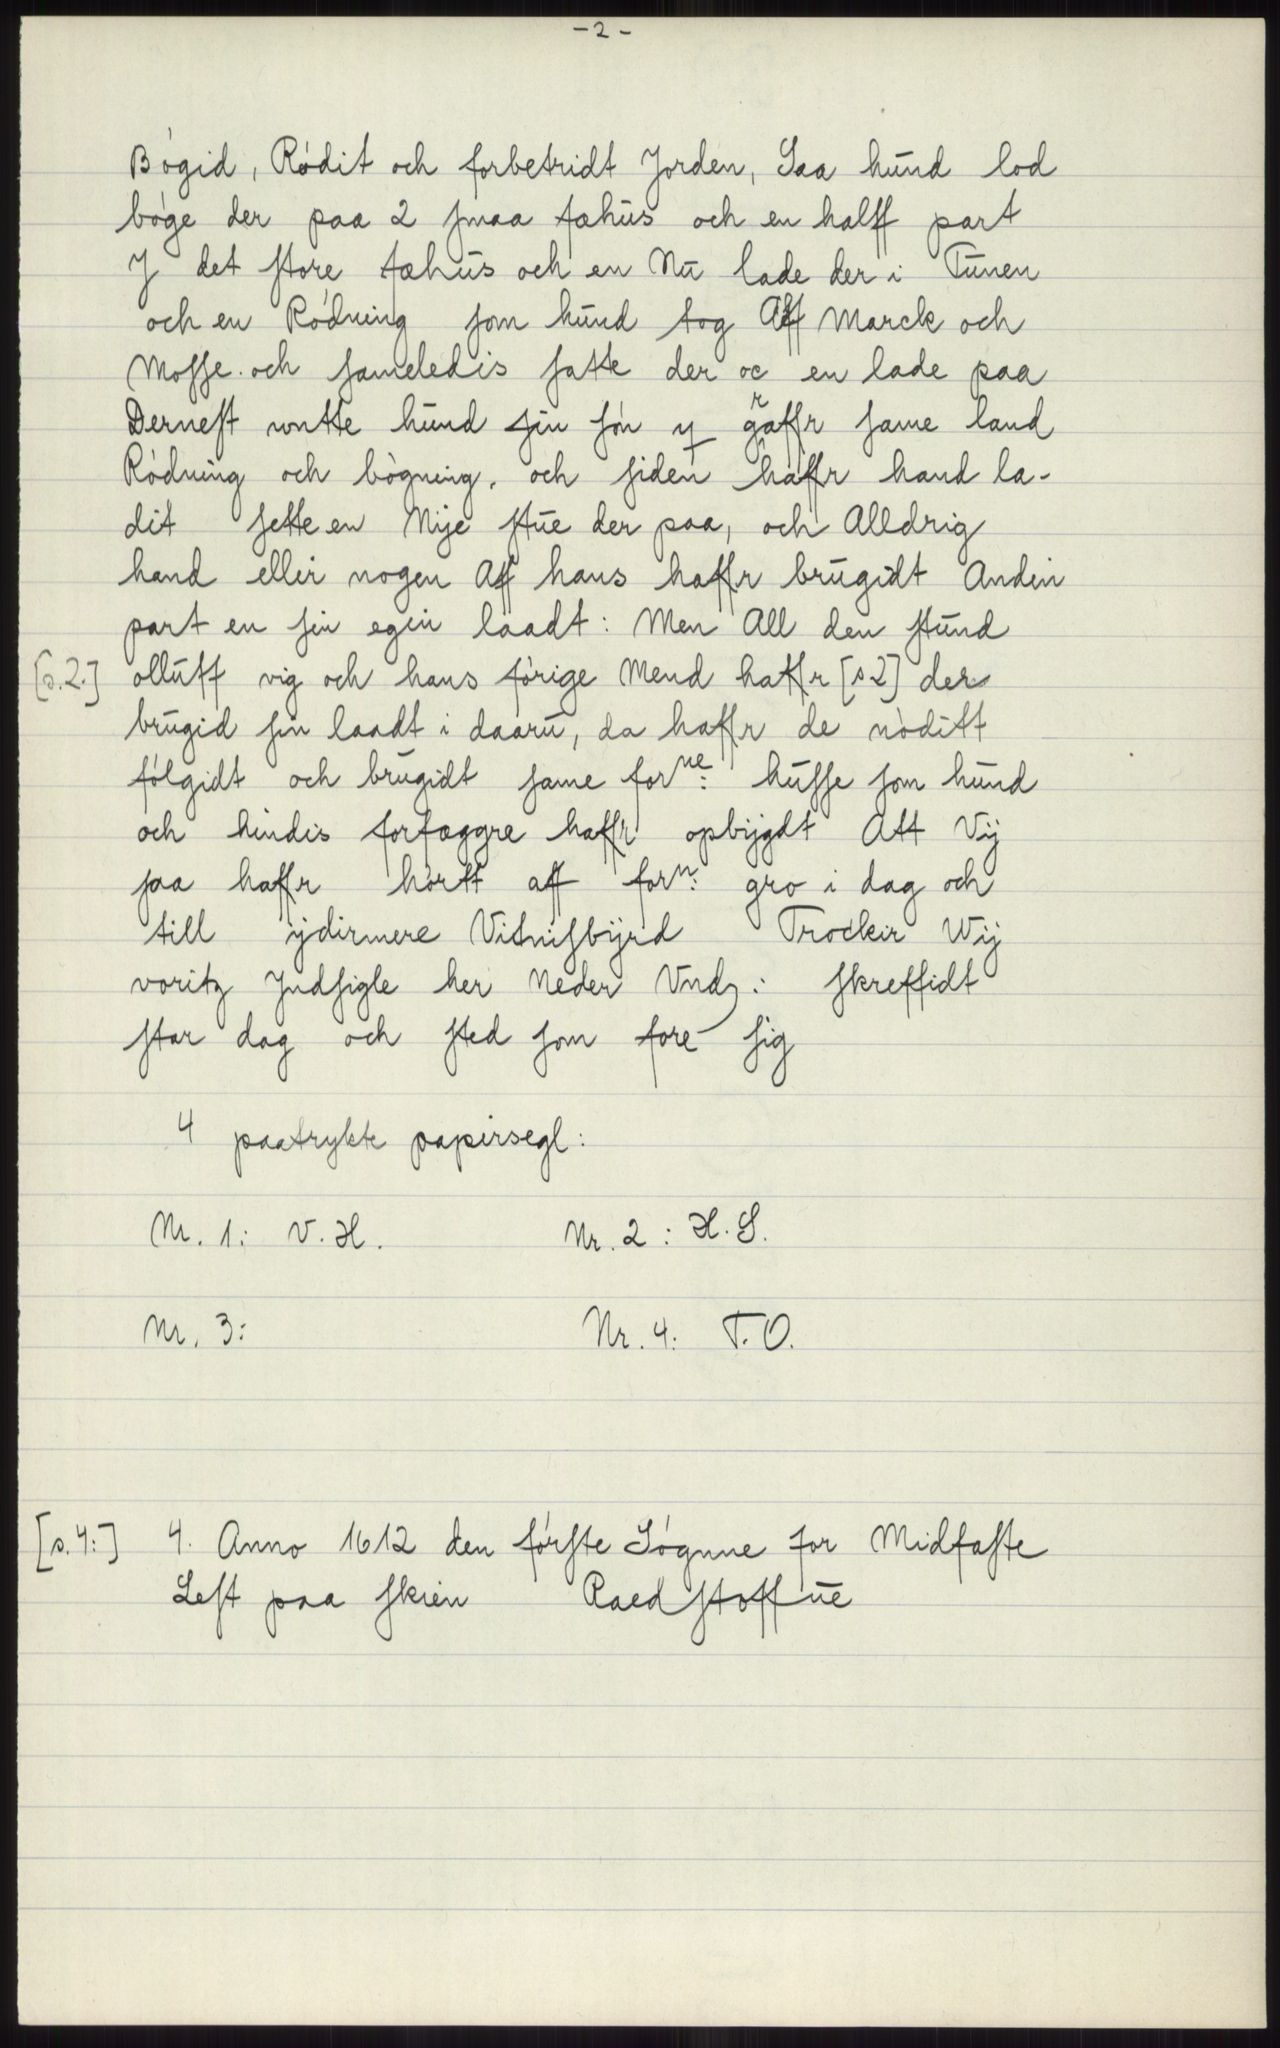 -2-
Bógid, Ródit och forbetridt Jorden, Saa hund lod
bóge der paa 2 smaa fæhus och en halff part
J det store fæhus och en Nu lade der i Tunen
och en Ródning som hund tog Aff Marck och
Mosse. och sameledis satte der oc en lade paa
Dernest wntte hund sin són y gaffr same land
Ródning och bógning. och siden haffr hand la-
dit sette en Nije stue der paa, och Alldrig
hand ellir nogen Aff hans haffr brugidt Anden
part en sin egin laadt: Men All den stund
[s.2.] olluff vig och hans fórige Mend haffr [s2] der
brugid sin laadt i daaru, da haffr de nóditt
fólgidt och brugidt same forne: husse som hund
och hindis forfæggre haffr opbijgdt Att Vij
saa haffr hórtt aff forn: gro i dag och
till ijdirmere Vitnisbijrd Trockir Wij
voritz Jndsigle her Neder Vnd: skreffidt
star dag och sted som fore sig
4 paatrykte papirsegl:
Nr. 1: V.H. Nr. 2: H.S.
Nr. 3: Nr. 4: T.O.
[s.4:] 4. Anno 1612 den fórste Sógnne for Midfaste
Lest paa skien Raedstoffue